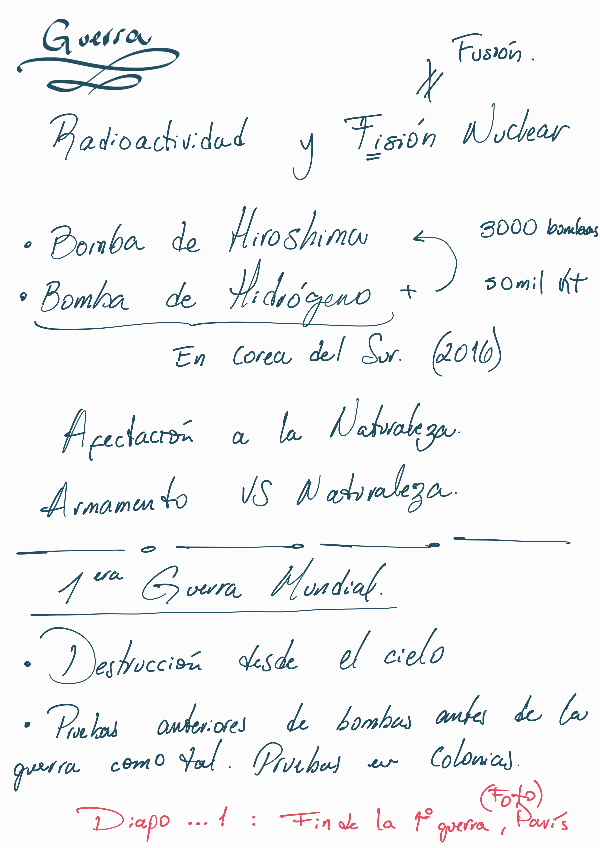 Guerra
Fusión.
Radioactividad y Fisión Nuclear
• Bomba de Hiroshima 3000 bombas
• Bomba de Hidrógeno + 50mil Kt
En Corea del Sur. (2016)
Afectación a la Naturaleza.
Armamento VS Naturaleza.
1era Guerra Mundial.
• Destrucción desde el cielo
• Pruebas anteriores de bombas antes de la
guerra como tal. Pruebas en Colonias.
(Foto)
Diapo ... 1 : Fin de la 1º guerra, París